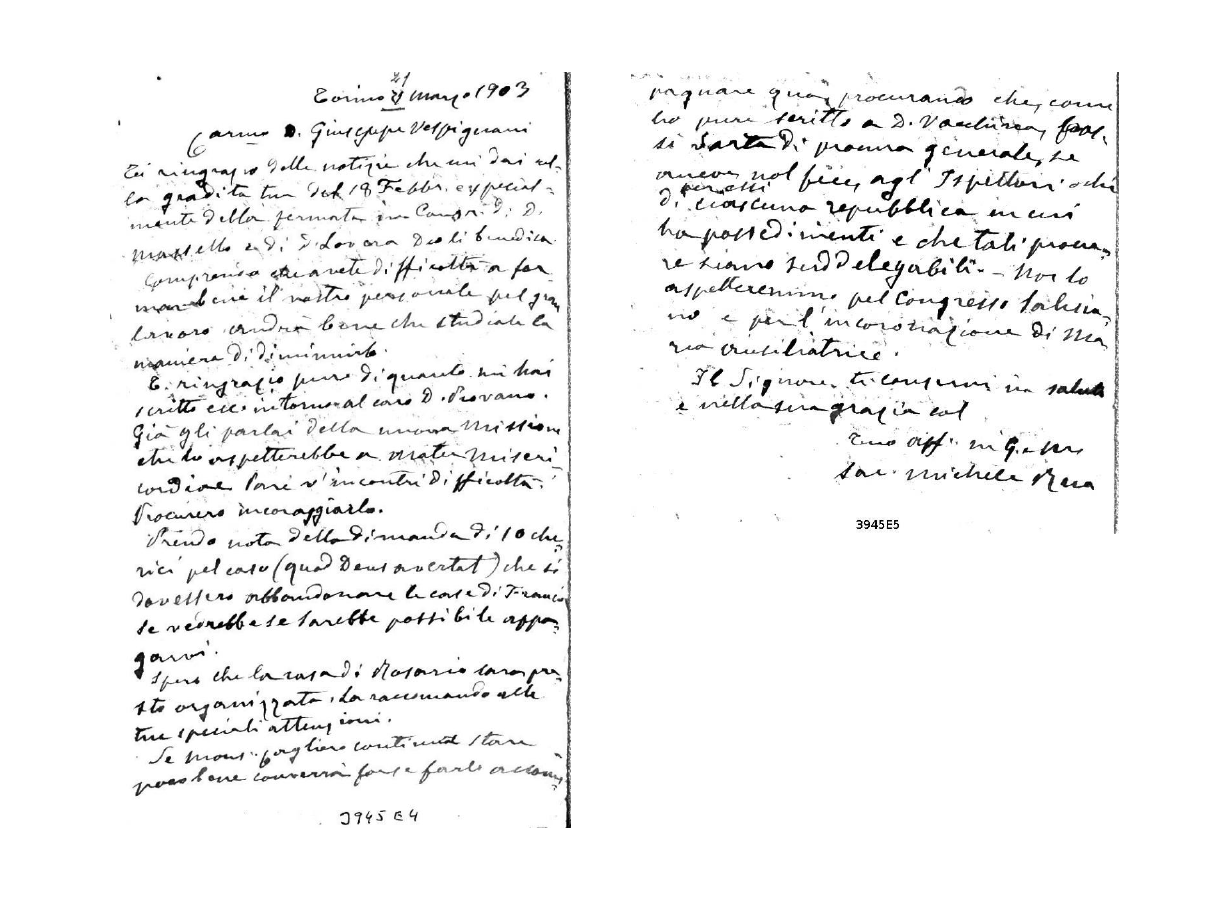 21
Torino Marzo 1903
Carmo D. Giuseppe Vespignani
Ti ringrazio delle notizie che mi dai nel-
la gradita tua del 18 Febbr. e special-
mente della fermata in di D.
e di D. Lovera Dio li benedica
Comprendo che avete difficoltà a for
mar bene il vostro personale pel gran
lavoro andrà bene che studiate la
maniera di diminuirlo.
E ringrazio pure di quanto mi hai
scritto ecc intorno al caro D. Piovano.
Già gli parlai della nuova Missione
che lo aspetterebbe a Mater Miseri
cordiae. Pare v'incontri difficoltà.
Procurerò incoraggiarlo.
Prendo nota della dimanda di 10 che-
rici pel caso (quod Deus avertat) che si
dovessero abbandonare le case di Francia
se vedrebbe se sarebbe possibile appa-
garvi.
Spero che la casa di Rosario sarà pre-
sto organizzata. La raccomando alle
tue speciali attenzioni.
Se Mons. Cagliero continua stare
poco bene converrà forse farlo accom-
pagnare qua, procurando che, come
ho pure scritto a D. Vacchina, fac-
si sarta di procura generale, se
ancora nol fece, agl' Ispettori o chi
per essi
di ciascuna repubblica in cui
ha possedimenti e che tali procu-
re siano suddelegabili. - Noi lo
aspetteremmo pel Congresso Salesia-
no e per l'incoronazione di Ma
ria Ausiliatrice.
Il Signore ti conservi in salute
e nella sua grazia col
Tuo aff. in G. e M
Sac. Michele Rua
3945E4
3945E5